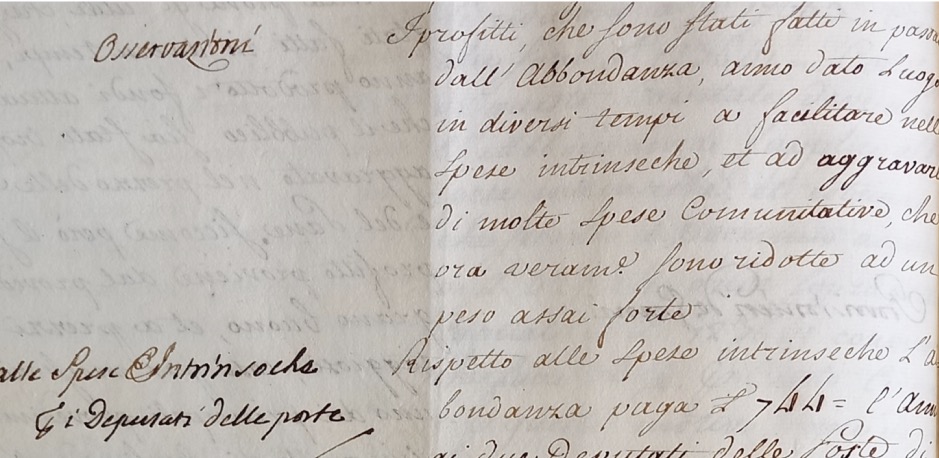 Osservazioni
I profitti, che sono stati fatti in pass
dall' Abbondanza, anno dato Luogo
in diversi tempi a facilitare nell
spese intrinseche, et ad aggravarl
di molte spese Comunitative, che
ora veram.e sono ridotte ad un
peso assai forte
alle Spese Intrinseche
i Deputati delle porte
Rispetto alle spese intrinseche L'a
bondanza paga £ 744= l'Ann
ai due Deputati delle Porte di